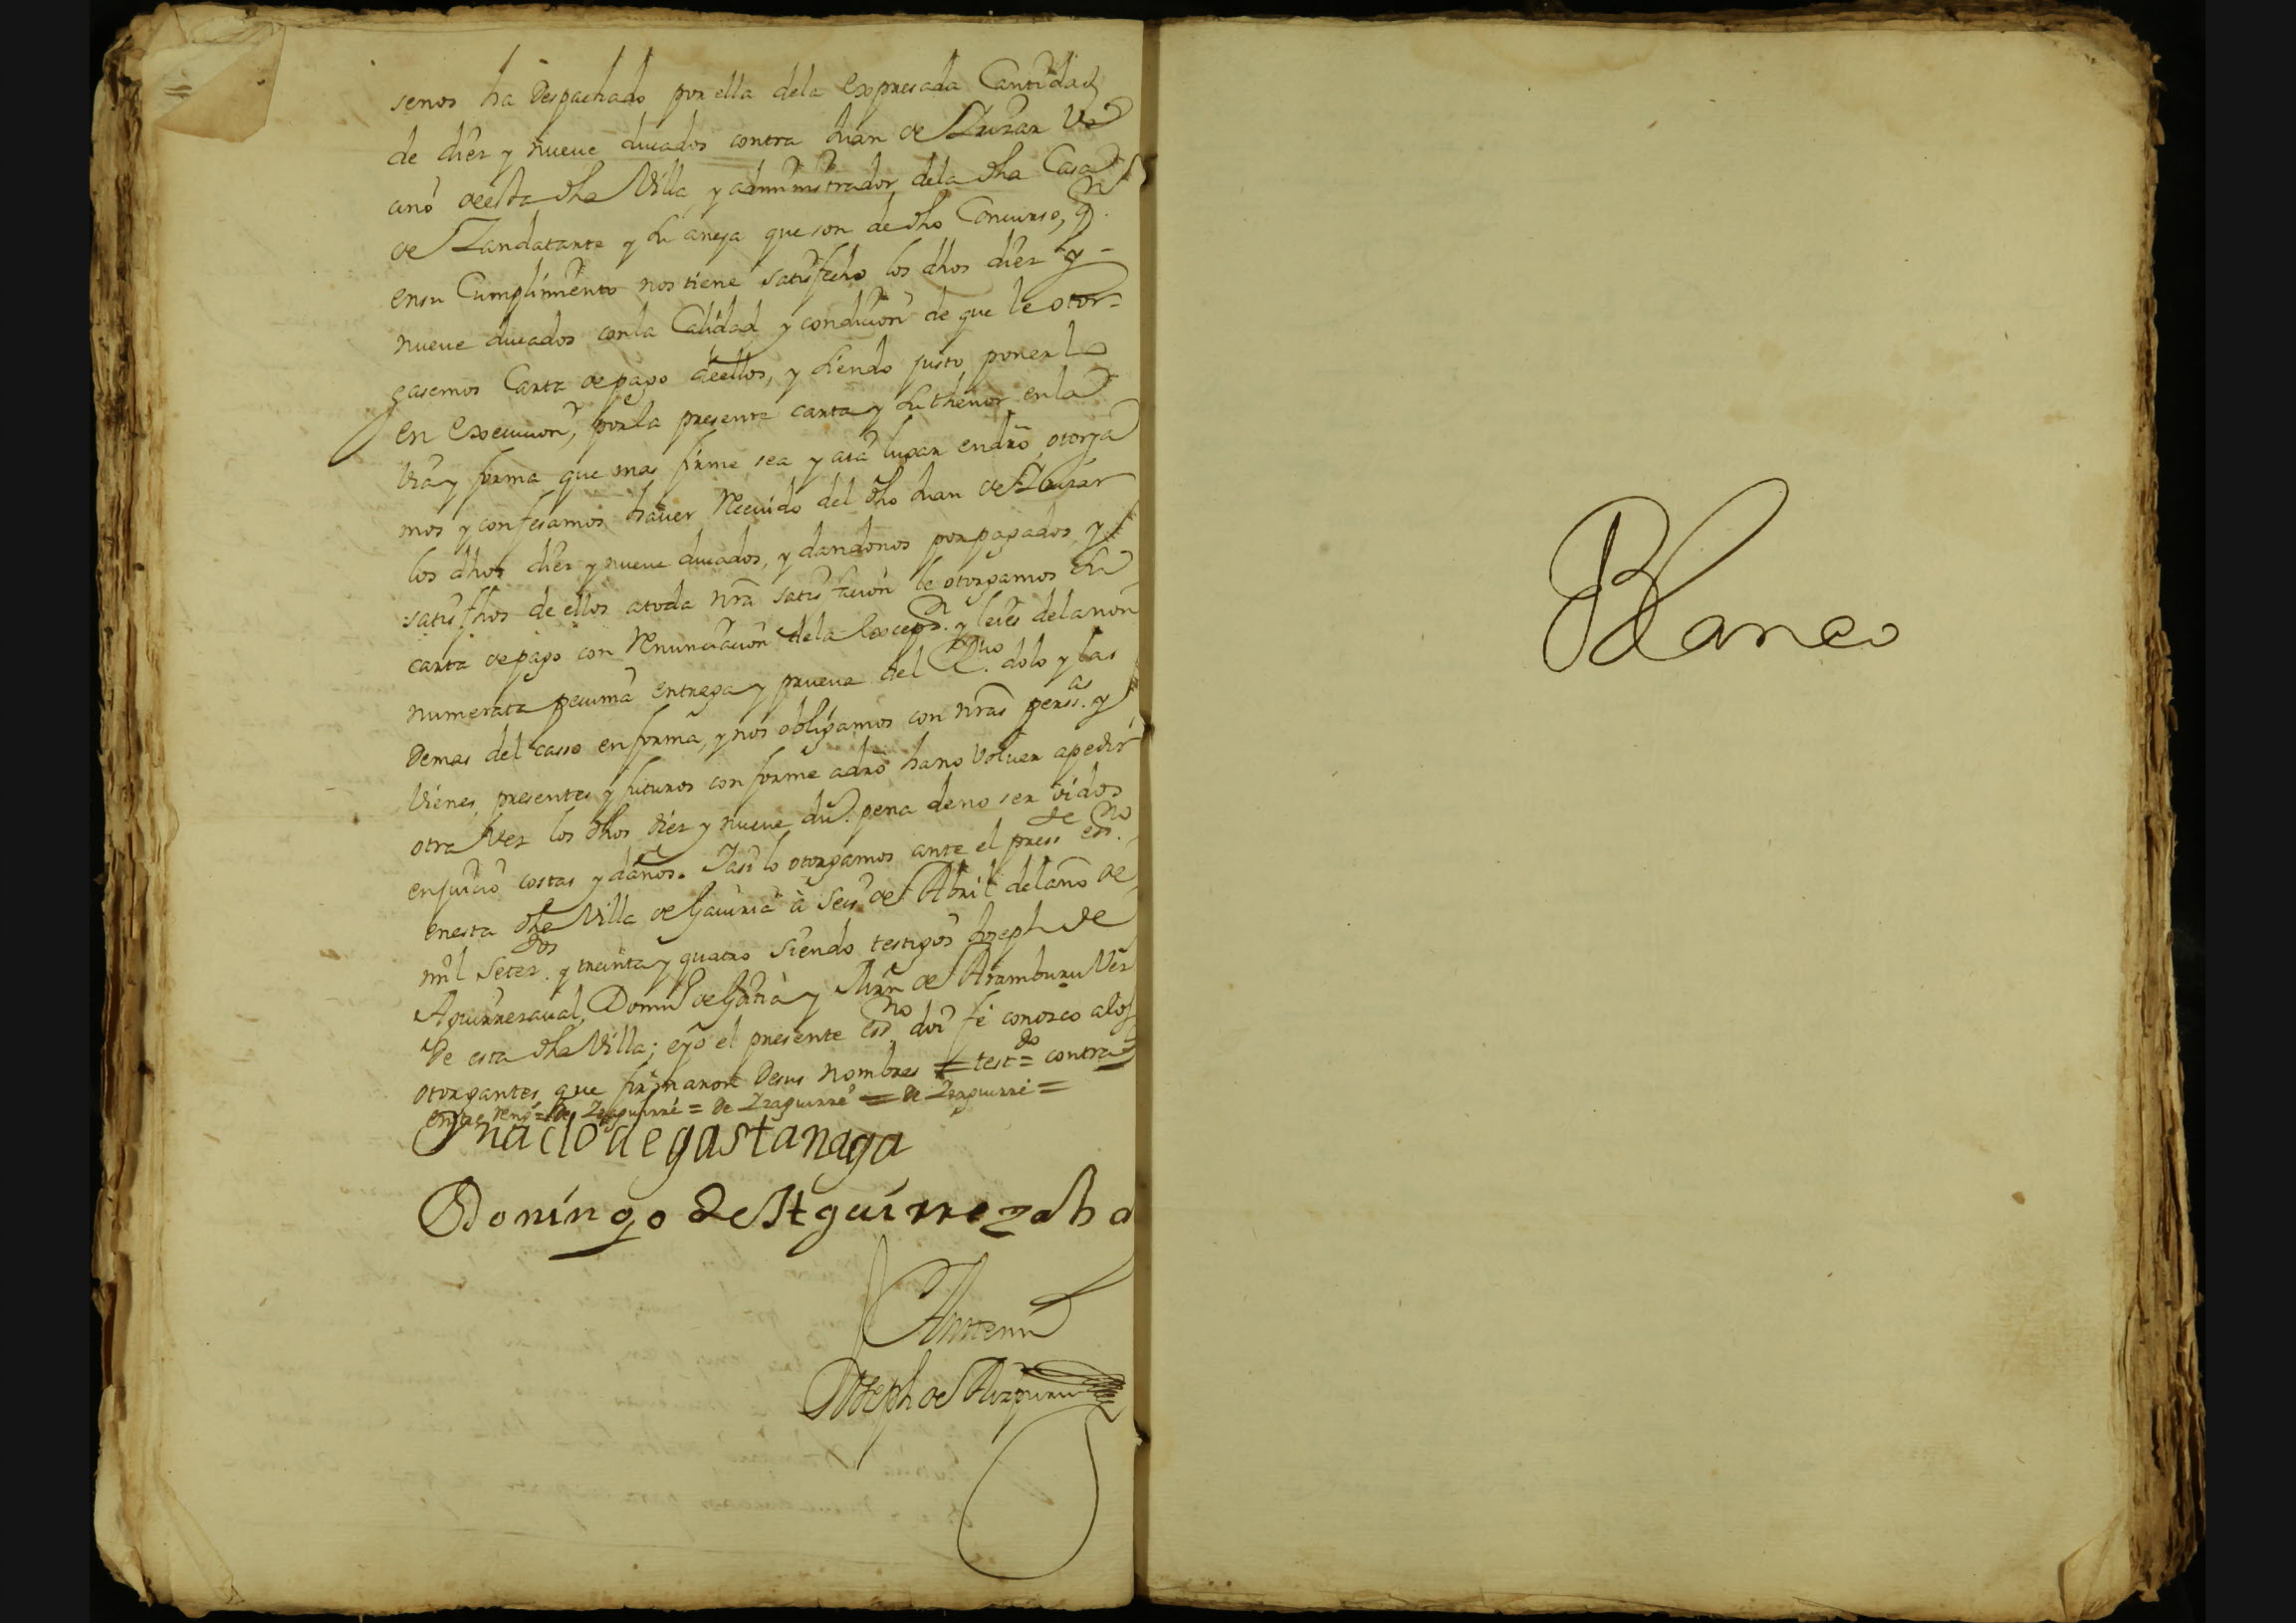 senos ha Despachado por ella dela expresada Cantidad
de diez y nueue ducados contra Juan de
ano deesta dha Villa, y administrador dela dha Casa
de Zandatante y su aneja que son de dho Concurso, q.n
ensu Cumplimiento nos tiene satisfecho los dhos diez y
nueue ducados conla Calidad y condicion de que le otor=
gasemos Carta de pago deellos, y siendo justo ponerlo
en execucion, por la presente carta y su thenor en la
via y forma que mas firme sea y aia lugar endrō, otorga
mos y confesamos hauer Receuido del dho Juan de
los dhos diez y nueue ducados, y dandonos por pagados, y
satisfhos de ellos atoda nrā satisfacion le otorgamos su
carta de pago con Renunciacion dela excep.n y leies delanon
numerata pecunia entrega y prueua del Rc.uo dolo y las
Demas del casso en forma, y nos obligamos con nrās perss.as y
Vienes, presentes y futuros conforme adrō hano Voluer apedir
otra Vez los dhos diez y nueue du.s pena deno ser oidos
enjuicio costas y daños. Iasi lo otorgamos ante el press.te ess.no
enesta dha Villa de Gauiria à Seis de Abril delaño de
mil Setez.dos y treinta y quatro Siendo testigos Joseph de
Aguirrezaual, Domin.o de Gauiria y Mrn̄ de Aramburu Vez.s
De esta dha Villa; e yo el presente ess.no doi fé conozco alos
otorgantes que firmaron Desus nombres = test.do = contra =
entre reng.s = de Izaguirre = de Izaguirre = de Izaguirre =
Ynacio de gastanaga
Domingo de Aguirrezaba
Antemi
Joseph de Aizpuru
Blanco